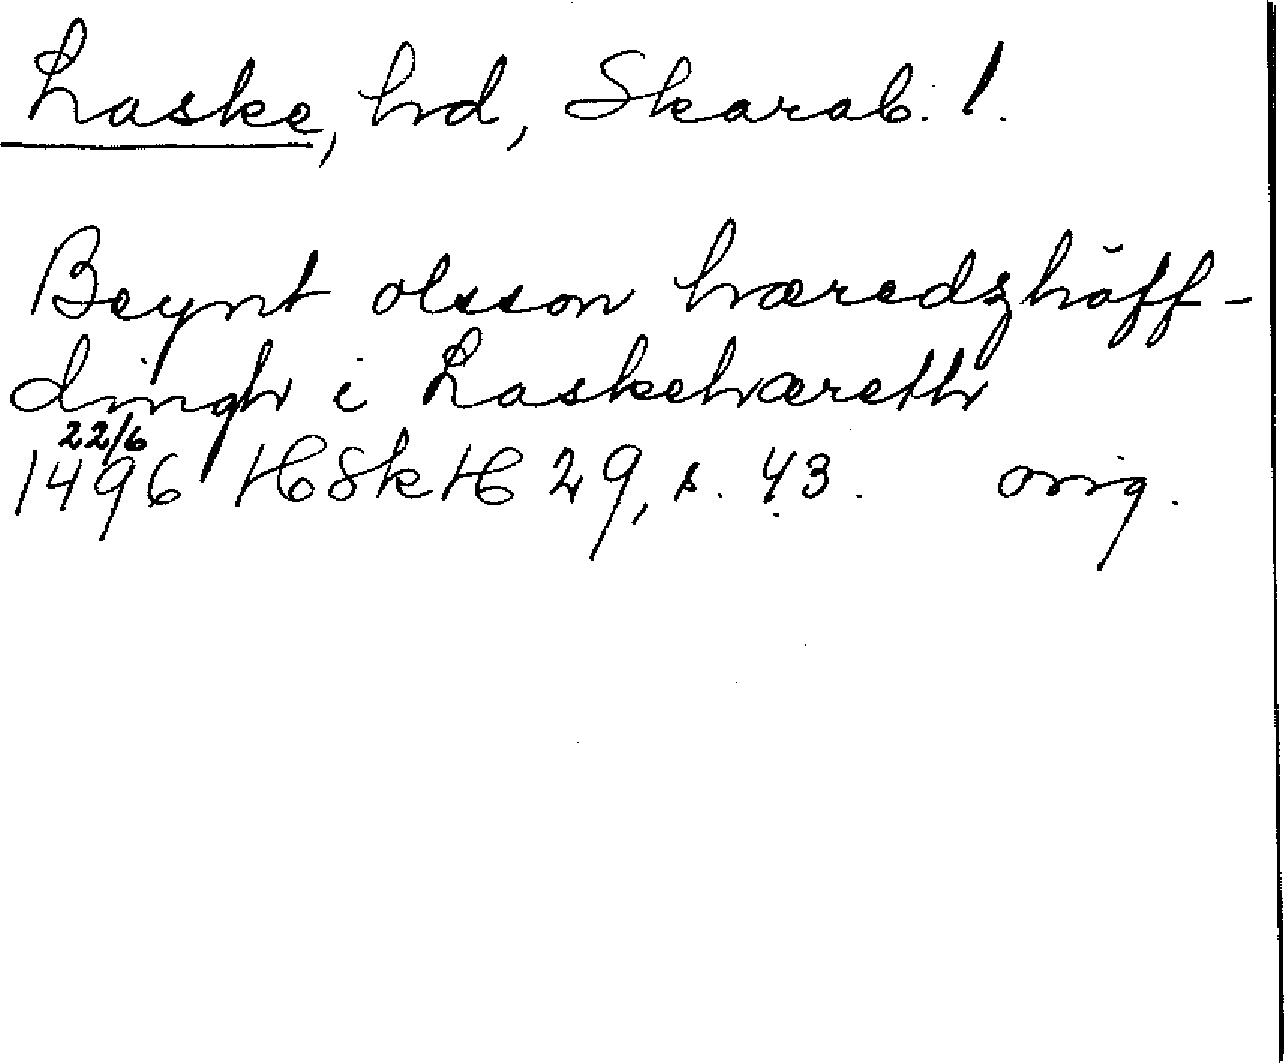 Laske, hd, Skarab. l.
Beynt olsson hæredzhöff-
dingh i Laskehæreth
22/6
1496 HSkH 29, s. 43. orig.